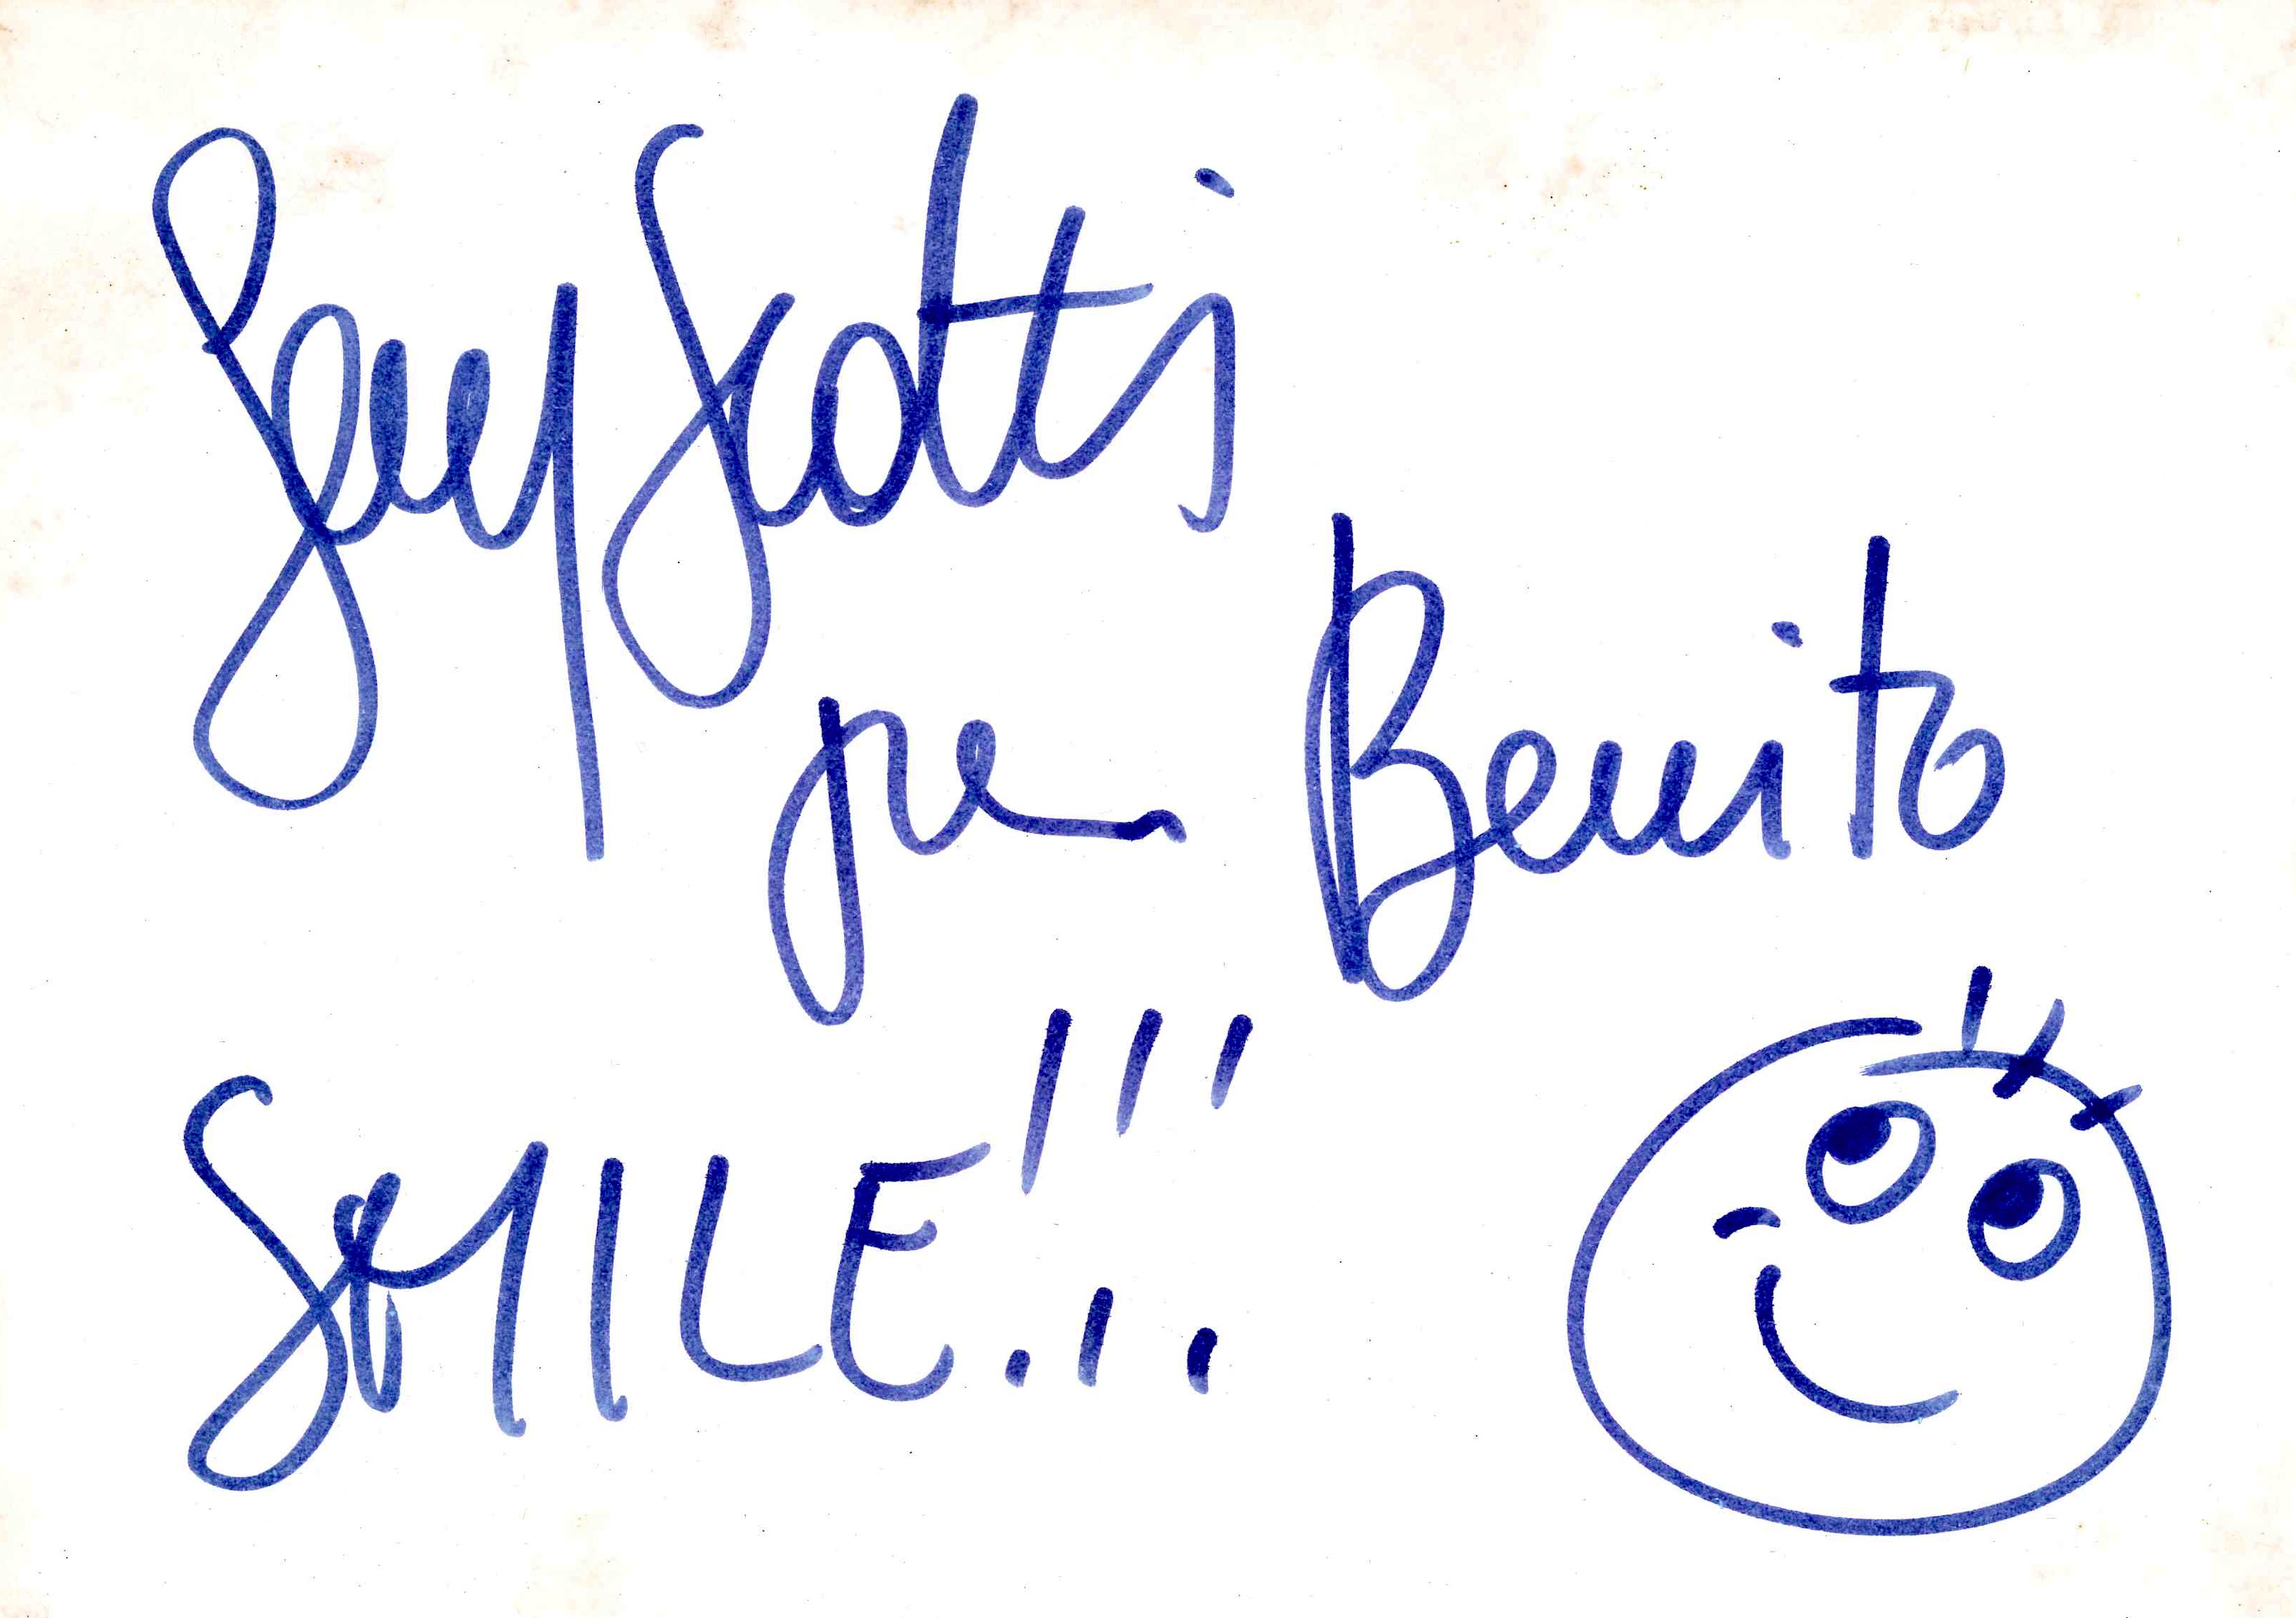 Gerry Scotti
per Benito
SMILE!!!